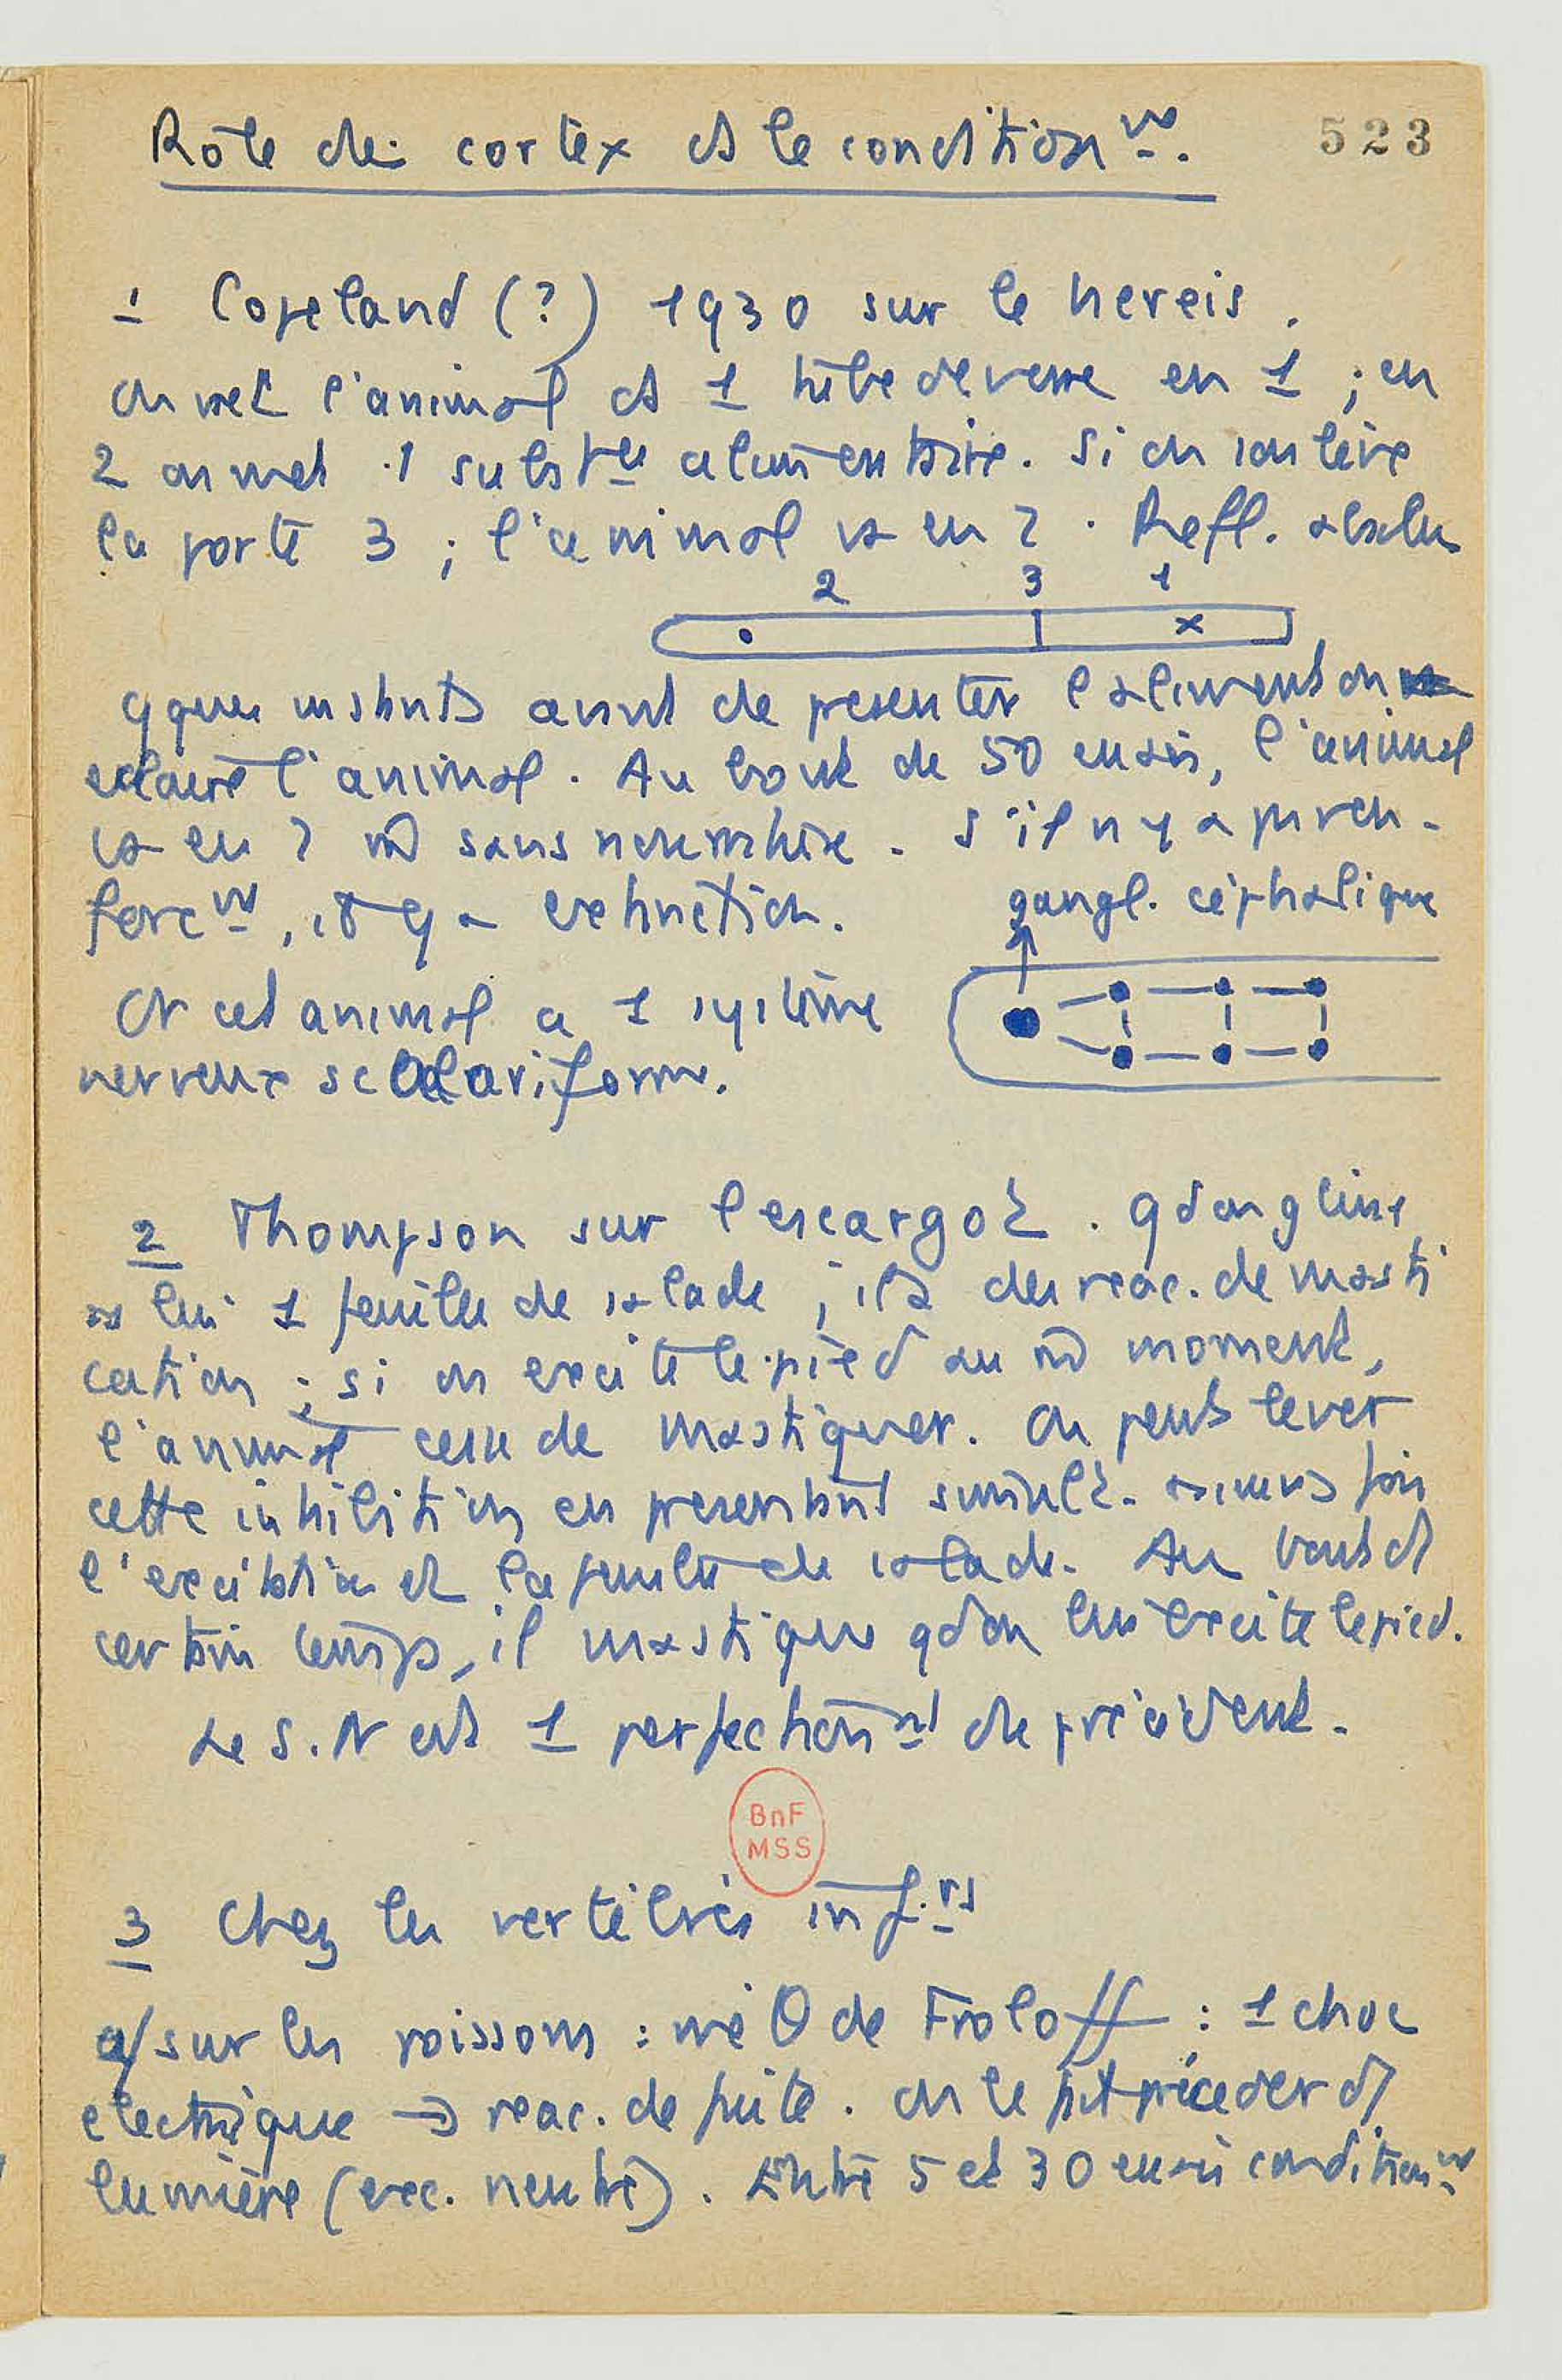 Rôle du cortex ds le condition nt.
523
1 Copeland (?) 1930 sur le nereis.
On met l'animal ds 1 tube de verre en 1 ; en
2 on met 1 subst ce alimentaire. Si on soulève
la porte 3 ; l'animal va en 2. Refl. absolu
2 3 1
qques instants avant de presenter l'aliment on
eclaire l'animal. Au bout de 50 essais, l'animal
va en 2 m̂ sans nourriture. S'il n'y a pas ren-
forc nt, il y a extinction.
gangl. céphalique
Or cet animal a 1 système
nerveux scalariforme.
2 Thompson sur l'escargot. qd on glisse
ss lui 1 feuille de salade ; il a des reac. de masti
cation ; si on excite le pied au m̂ moment,
l'animal cesse de mastiquer. On peut lever
cette inhibition en presentant simult.
l'excitation et la feuille de salade. Au bout d'1
certain temps, il mastique qd on lui excite le pied.
Le S.N est 1 perfection nt du précédent.
BnF
MSS
3 Chez les vertébrés inf. rs
a/ sur les poissons : mé θ de Froloff : 1 choc
electrique → reac. de fuite. On le fait préceder d'1
lumière (exc. neutre). Entre 5 et 30 essais condition nt